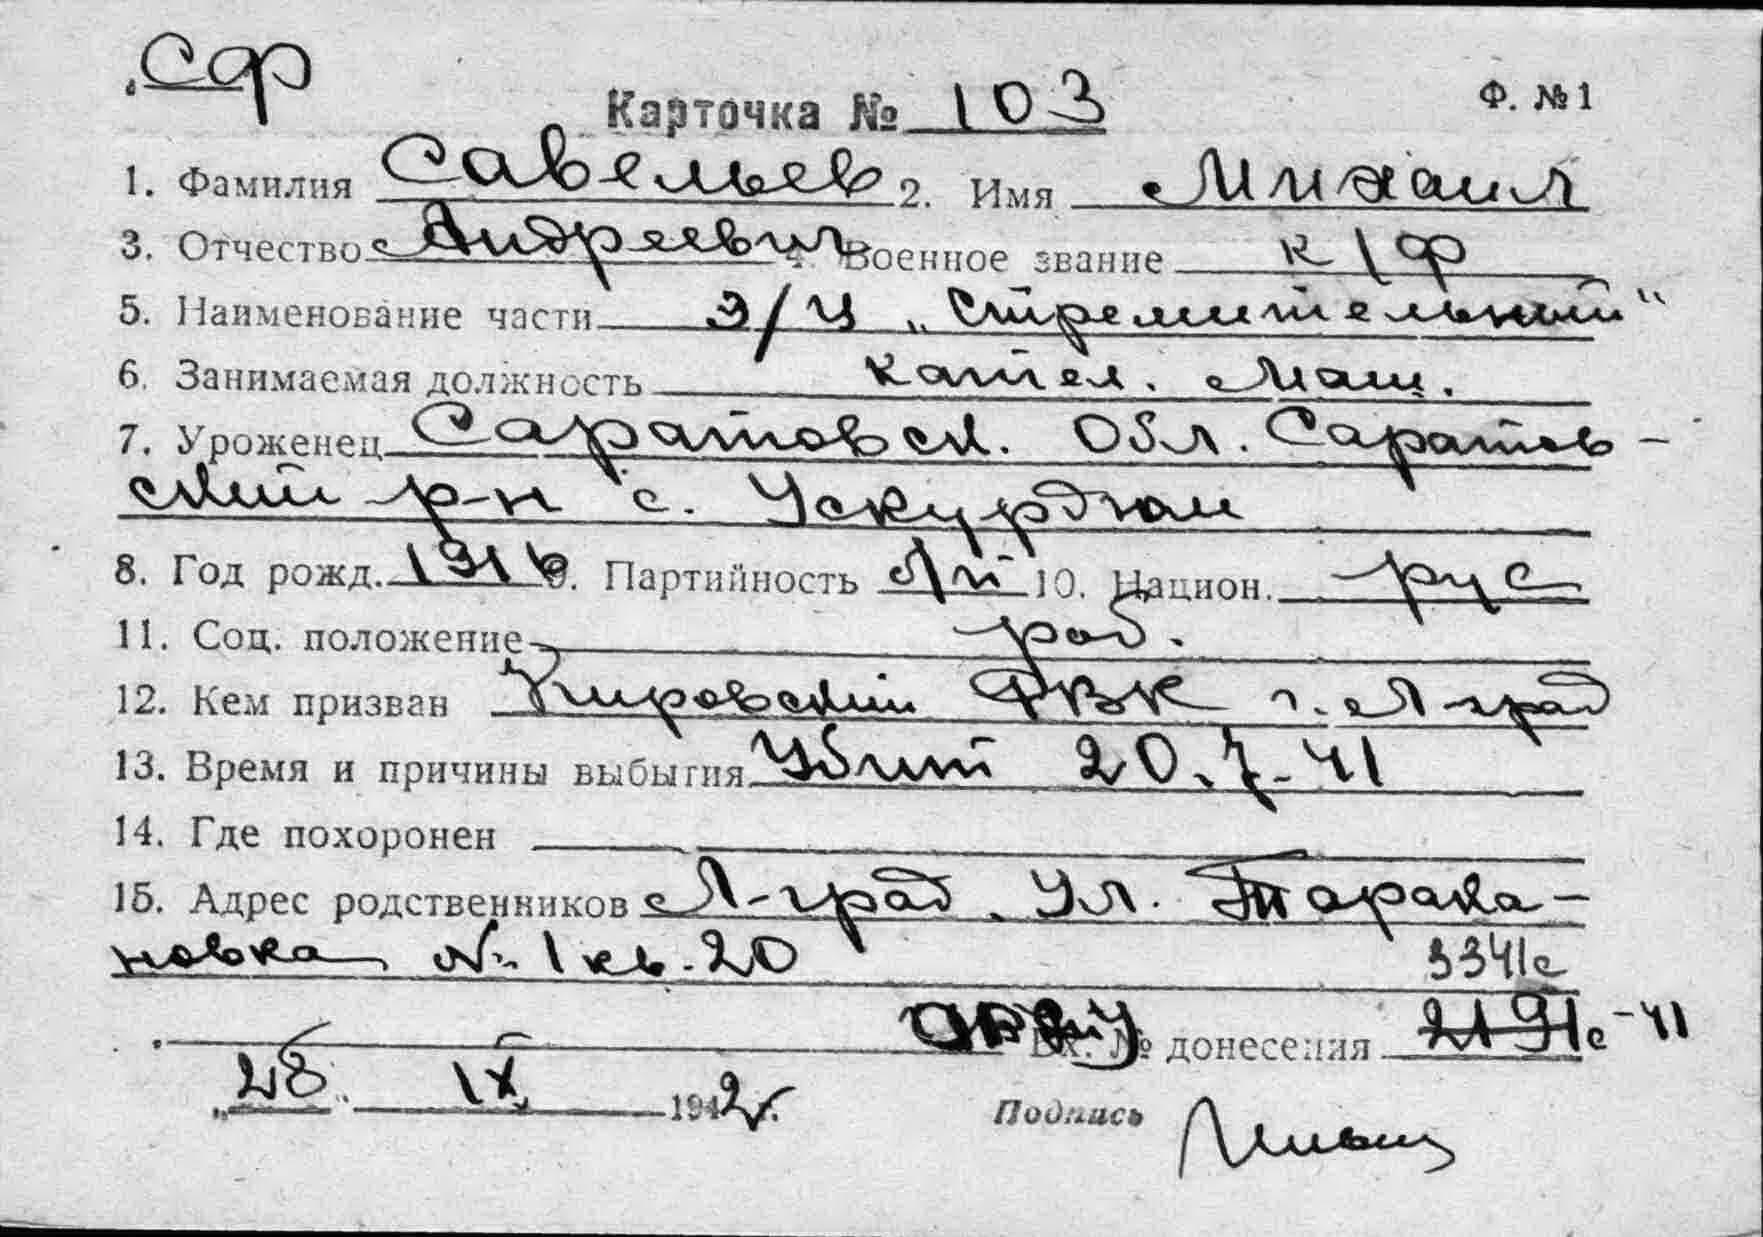 СФ
Ф. №1
Карточка № 103
1. Фамилия Савельев 2. Имя Михаил
3. Отчество Андреевич 4. Военное звание к/ф
5. Наименование части э/м „Стремительный“
6. Занимаемая должность котел. маш.
7. Уроженец Саратовск. Обл. Саратов-
ский р-н с. Ускурдюм
8. Год рожд. 1916 9. Партийность б/п 10. Национ. рус
11. Соц. положение раб.
12. Кем призван Кировский РВК г. Л-град
13. Время и причины выбытия Убит 20.7-41
14. Где похоронен
15. Адрес родственников Л-град. Ул. Тарака-
новка № 1 кв. 20 3341с
Вх. № донесения 2191с-41
„28“ IX 1942г.
Подпись